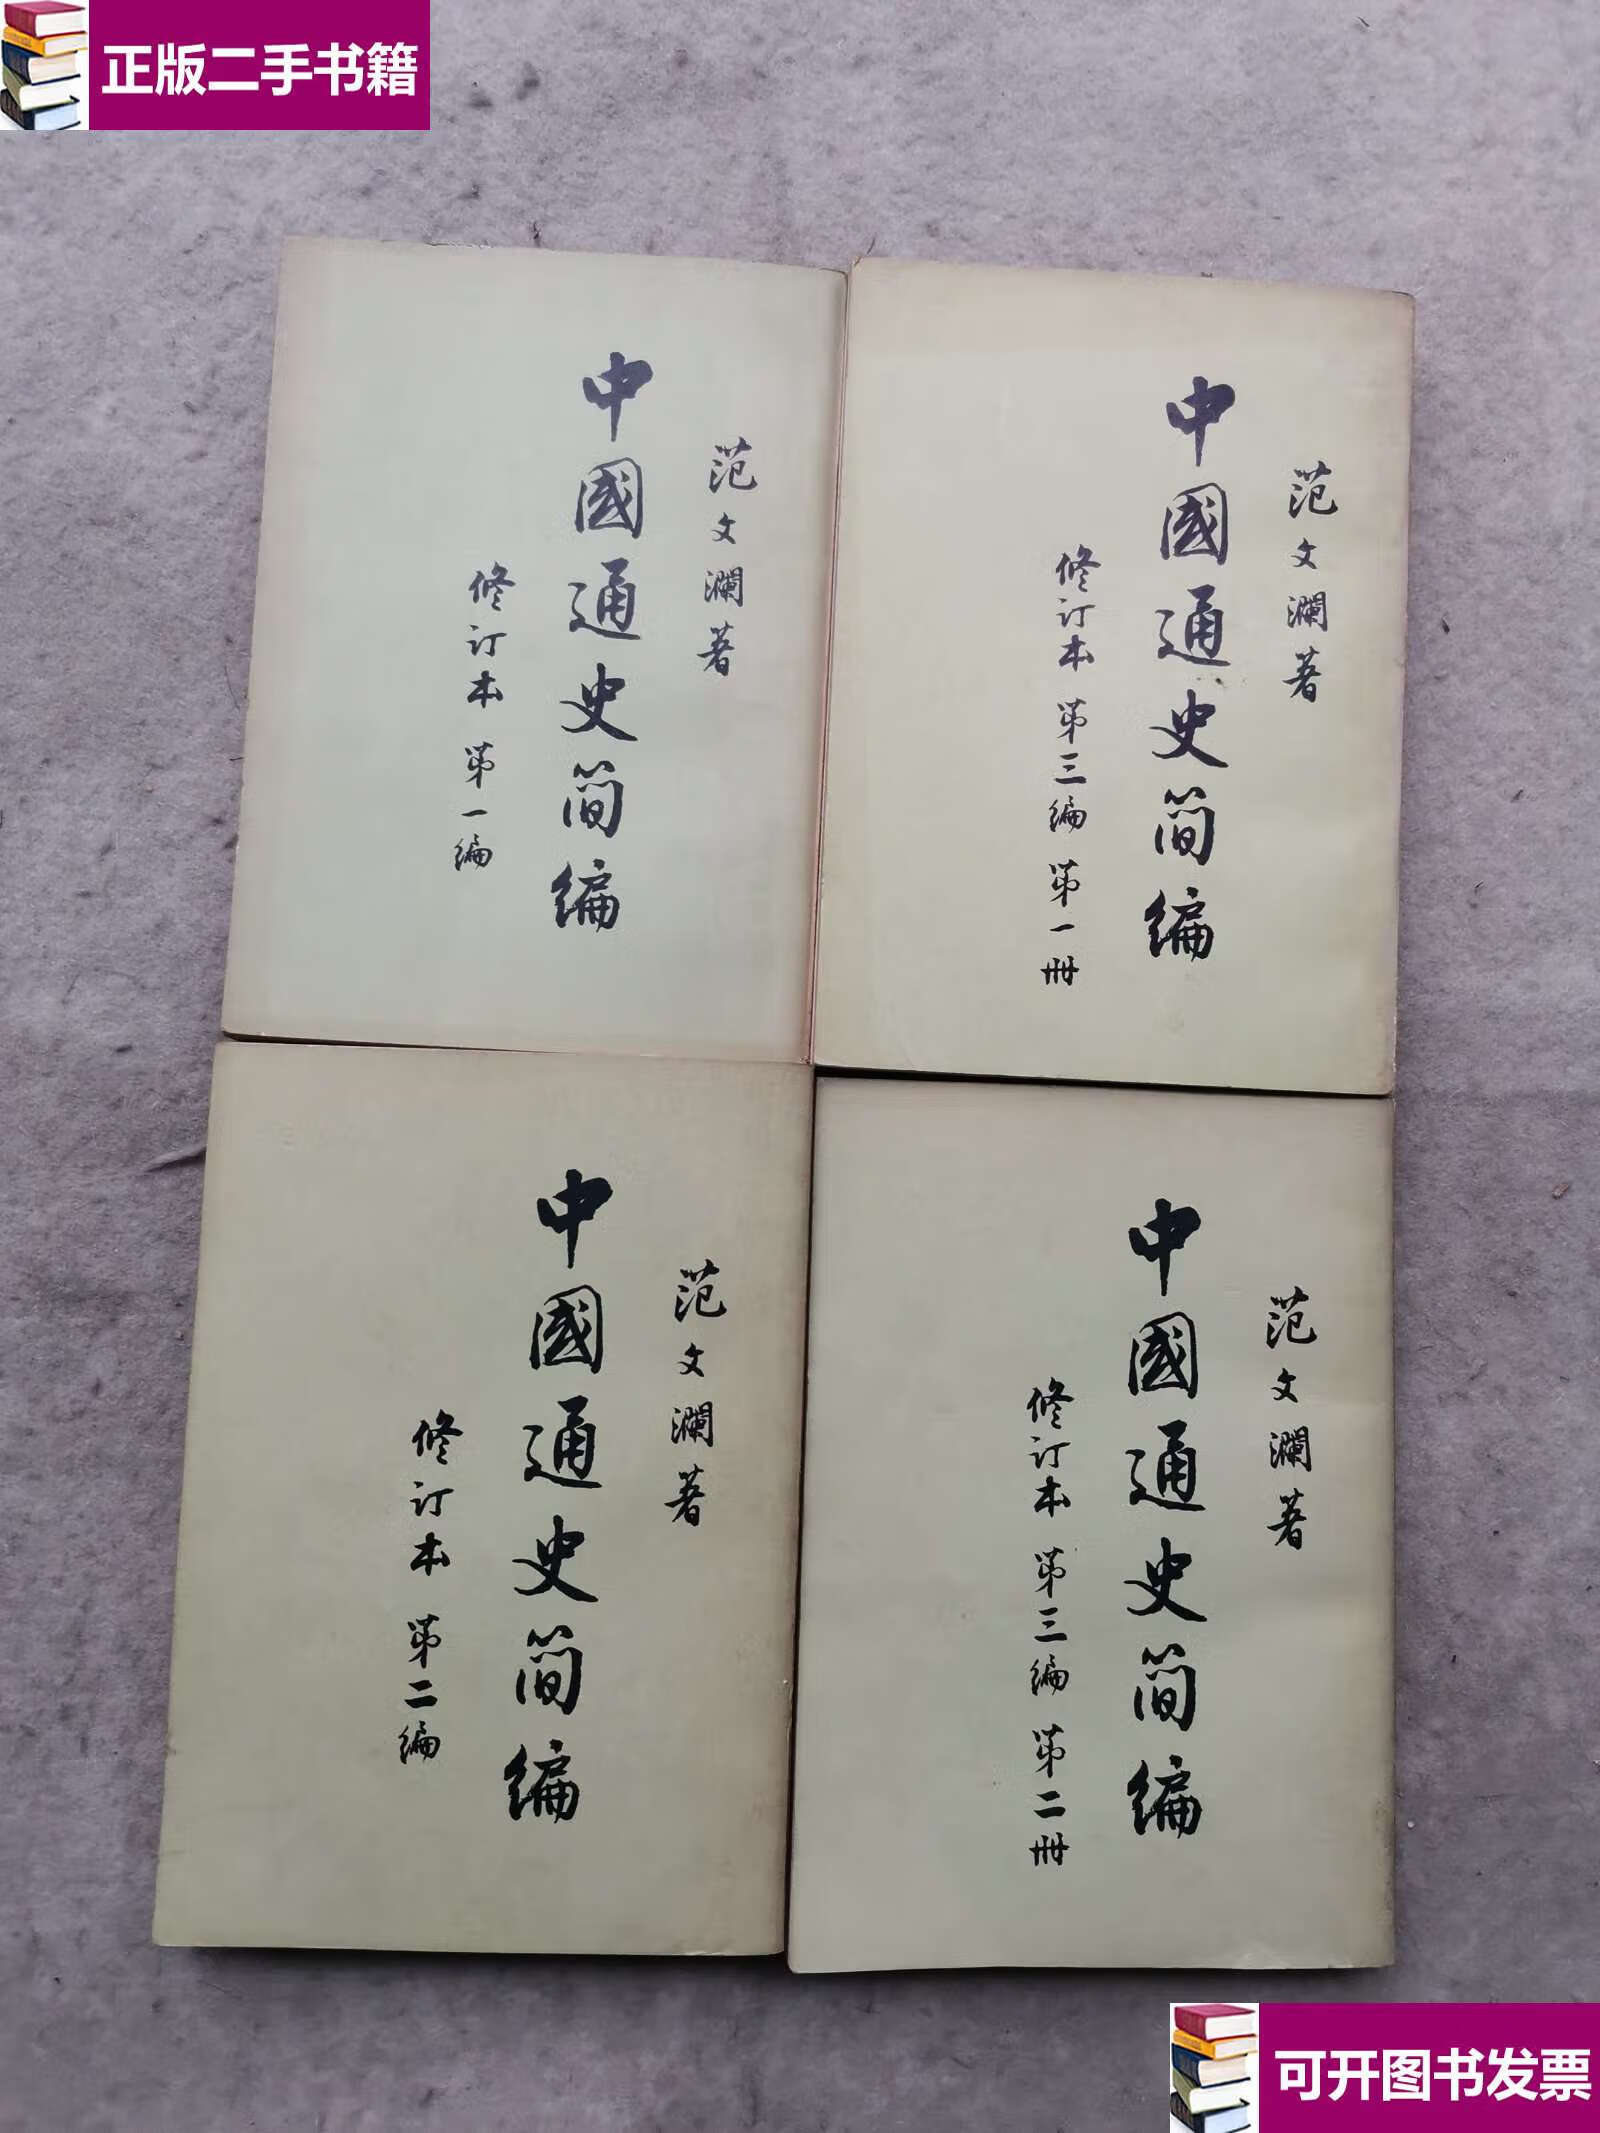 正版二手书籍
范文瀾著
中國通史简编
修订本 第一编
范文瀾著
中國通史简编
修订本 第三编 第一册
范文瀾著
中國通史简编
修订本 第二编
范文瀾著
中國通史简编
修订本 第三编 第二册
可开图书发票